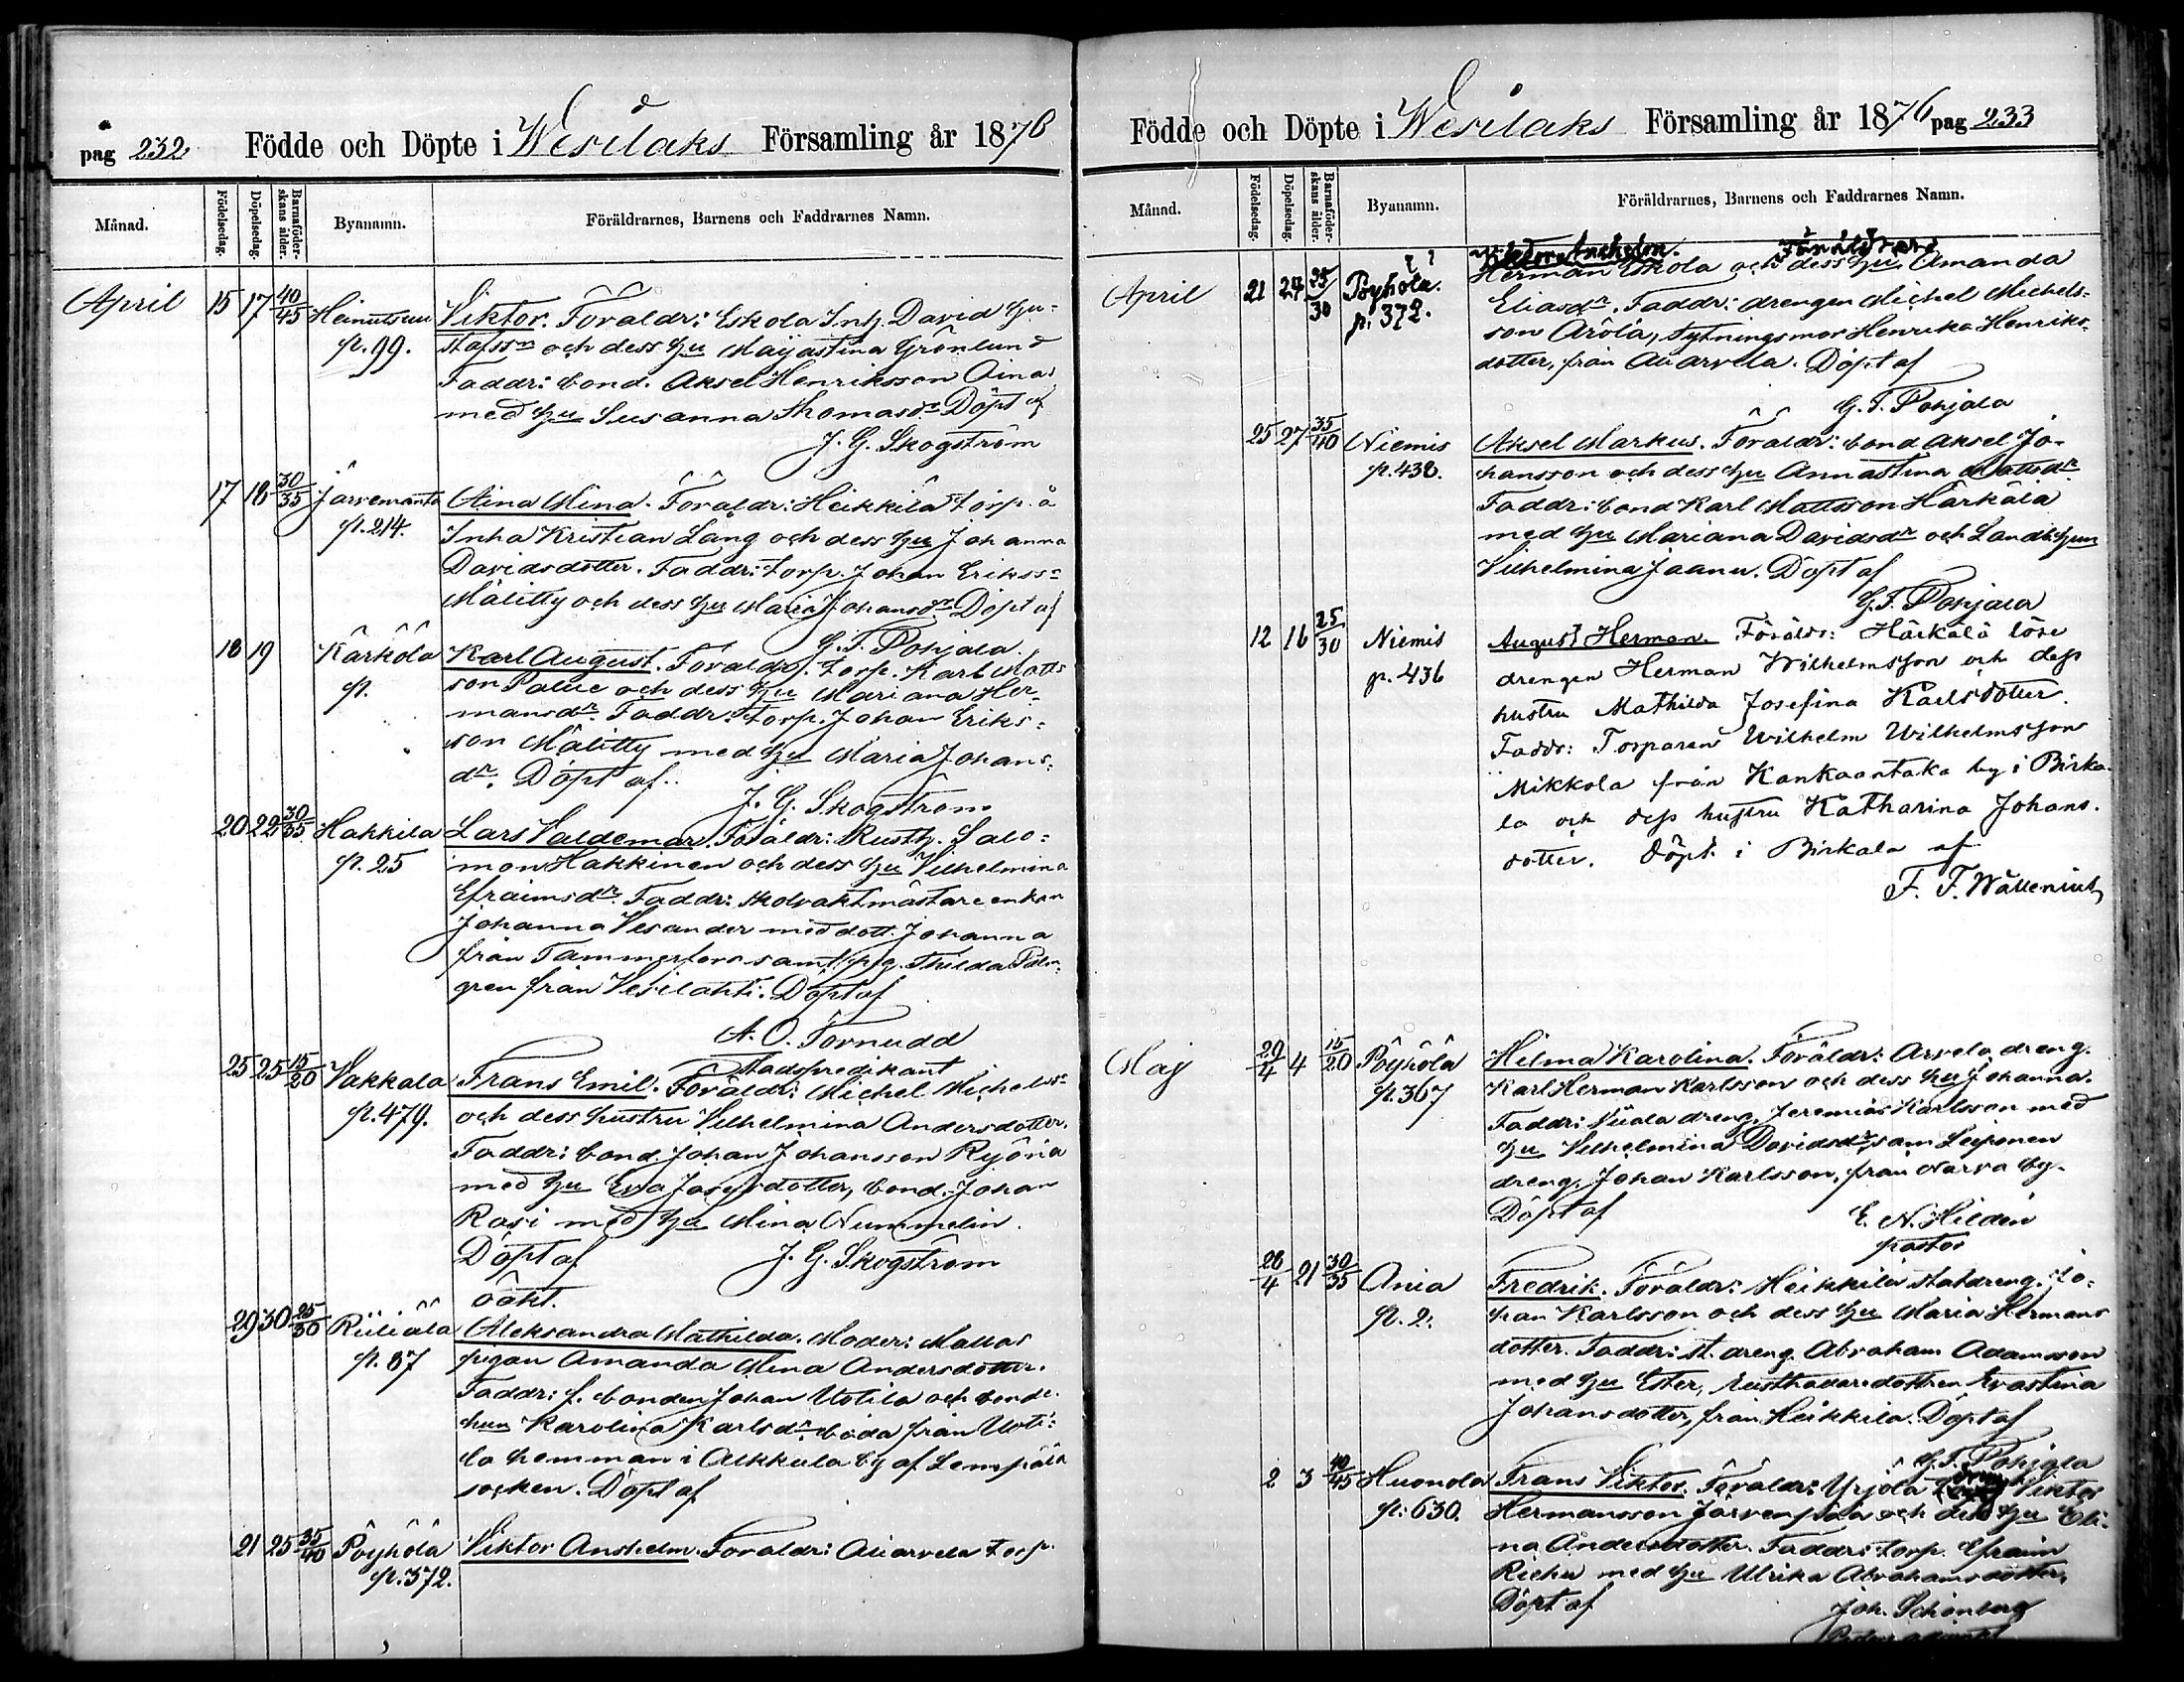 pag 232. Födde och Döpte i Wesilaks Församling år 1876
Månad. Födelsedag. Döpelsedag. Barnaföderskans ålder. Byanamn. Föräldrarnes, Barnens och Faddrarnes Namn.
April 15 17 40/45 Viktor. Föräldr: Eskola Inh. David Gu-
p. 99. stafssn och dess hu Maijastina Grönlund
Faddr: bond. Aksel Henriksson Oina
med hu Susanna Thomasdr Döpt af
J. G. Skogström
17 18 30/35 Järvenranta Aina Mina. Föräldr: Heikkilä torp. å
p. 214. Inha Kristian Lång och dess hu Johanna
Davidsdotter. Faddr: torp. Johan Erikssn
Mälitty och dess hu Maria Johansdr Döpt af
G. F. Pohjala.
18 19 Kärkölä Karl August. Föräldr. torp. Karl Matts
p. son Palue och dess hu Mariana Her-
mansdr. Faddr: torp. Johan Eriks-
son Mälitty med hu Maria Johans-
dr. Döpt af.
J. G. Skogström
20 22 30/35 Hakkila Lars Valdemar. Föräldr: Rusth. Salo-
p. 25 mon Hakkinen och dess hu Vilhelmina
Efraimsdr. Faddr: skolvaktmästare enkan
Johanna Vesander med dott. Johanna
från Tammerfors samt pig. Thilda Palm-
gren från Vesilahti. Döpt af
A. O. Törnudd
Stadspredikant
25 25 15/20 Vakkala Frans Emil. Föräldr: Michel Michelssn
p. 479. och dess hustru Vilhelmina Andersdotter.
Faddr: bond. Johan Johansson Ryöniä
med hu Eva Josefsdotter, bond. Johan
Rasi med hu Mina Nummelin.
Döpt af J. G. Skogström
oäkt.
29 30 25/30 Riiliälä Aleksandra Mathilda. Moder: Mattas
p. 87 pigan Amanda Mina Andersdotter.
Faddr: f. bonden Johan Uotila och bonde
hun Karolina Karlsdr. båda från Uoti-
la hemman i Alkkula by af Lempäälä
socken. Döpt af
21 25 35/40 Pöyhölä Viktor Anshelm. Föräldr: Aliarvela torp.
p. 372.
Födde och Döpte i Wesilaks Församling år 1876 pag 233
Månad. Födelsedag. Döpelsedag. Barnaföderskans ålder. Byanamn. Föräldrarnes, Barnens och Faddrarnes Namn.
Viktor Anshelm. Föräldrar:
April 21 27 25/30 Pöyhölä. Herman Eskola och dess hu Amanda
p. 372. Eliasdr. Faddr: drengen Michel Michels-
son Arola, sytningsmor Henrika Henriks-
dotter, från Aliarvela. Döpt af
G. F. Pohjala
25 27 35/40 Niemis Aksel Markus. Föräldr: bond Aksel Jo-
p. 438. hansson och dess hu Annastina Mattsdr.
Faddr: bond Karl Mattsson Härkälä
med hu Mariana Davidsdr och Landb. hun
Vilhelmina Jaanu. Döpt af
G. F. Pohjala
12 16 25/30 Niemis August Herman. Föräldr: Härkälä löse
p. 436 drengen Herman Wilhelmsson och dess
hustru Mathilda Josefina Karlsdotter.
Faddr: Torparen Wilhelm Wilhelmsson
Mikkola från Kankaantaka by i Birka-
la och dess hustru Katharina Johans-
dotter. Döpt i Birkala af
F. F. Wallenius
Maj 29/4 4 15/20 Pöyhölä Hilma Karolina. Föräldr: Arvela dreng.
p. 367 Karl Herman Karlsson och dess hu Johanna.
Faddr: dreng. Jeremias Karlsson med
hu Vilhelmina Davidsdr, sam Leiponen
dreng. Johan Karlsson, från Narva by.
Döpt af E. N. Hildén
pastor
28/4 21 30/35 Ania Fredrik. Föräldr: Heikkilä statdreng. Jo-
p. 2. han Karlsson och dess hu Maria Hermans
dotter. Faddr: st. dreng. Abraham Adamsson
med hu Ester, rusthållaredottren Evastina
Johansdotter, från Heikkilä. Döpt af
G. F. Pohjala
2 3 40/45 Huonola Frans Viktor. Föräldr: Yrjölä Viktor
p: 630. Hermansson Järvenpää och dess hu Eli-
na Andersdotter. Faddr: torp. Efraim
med hu Ulrika Abrahamsdotter,
Döpt af Joh. Schönberg